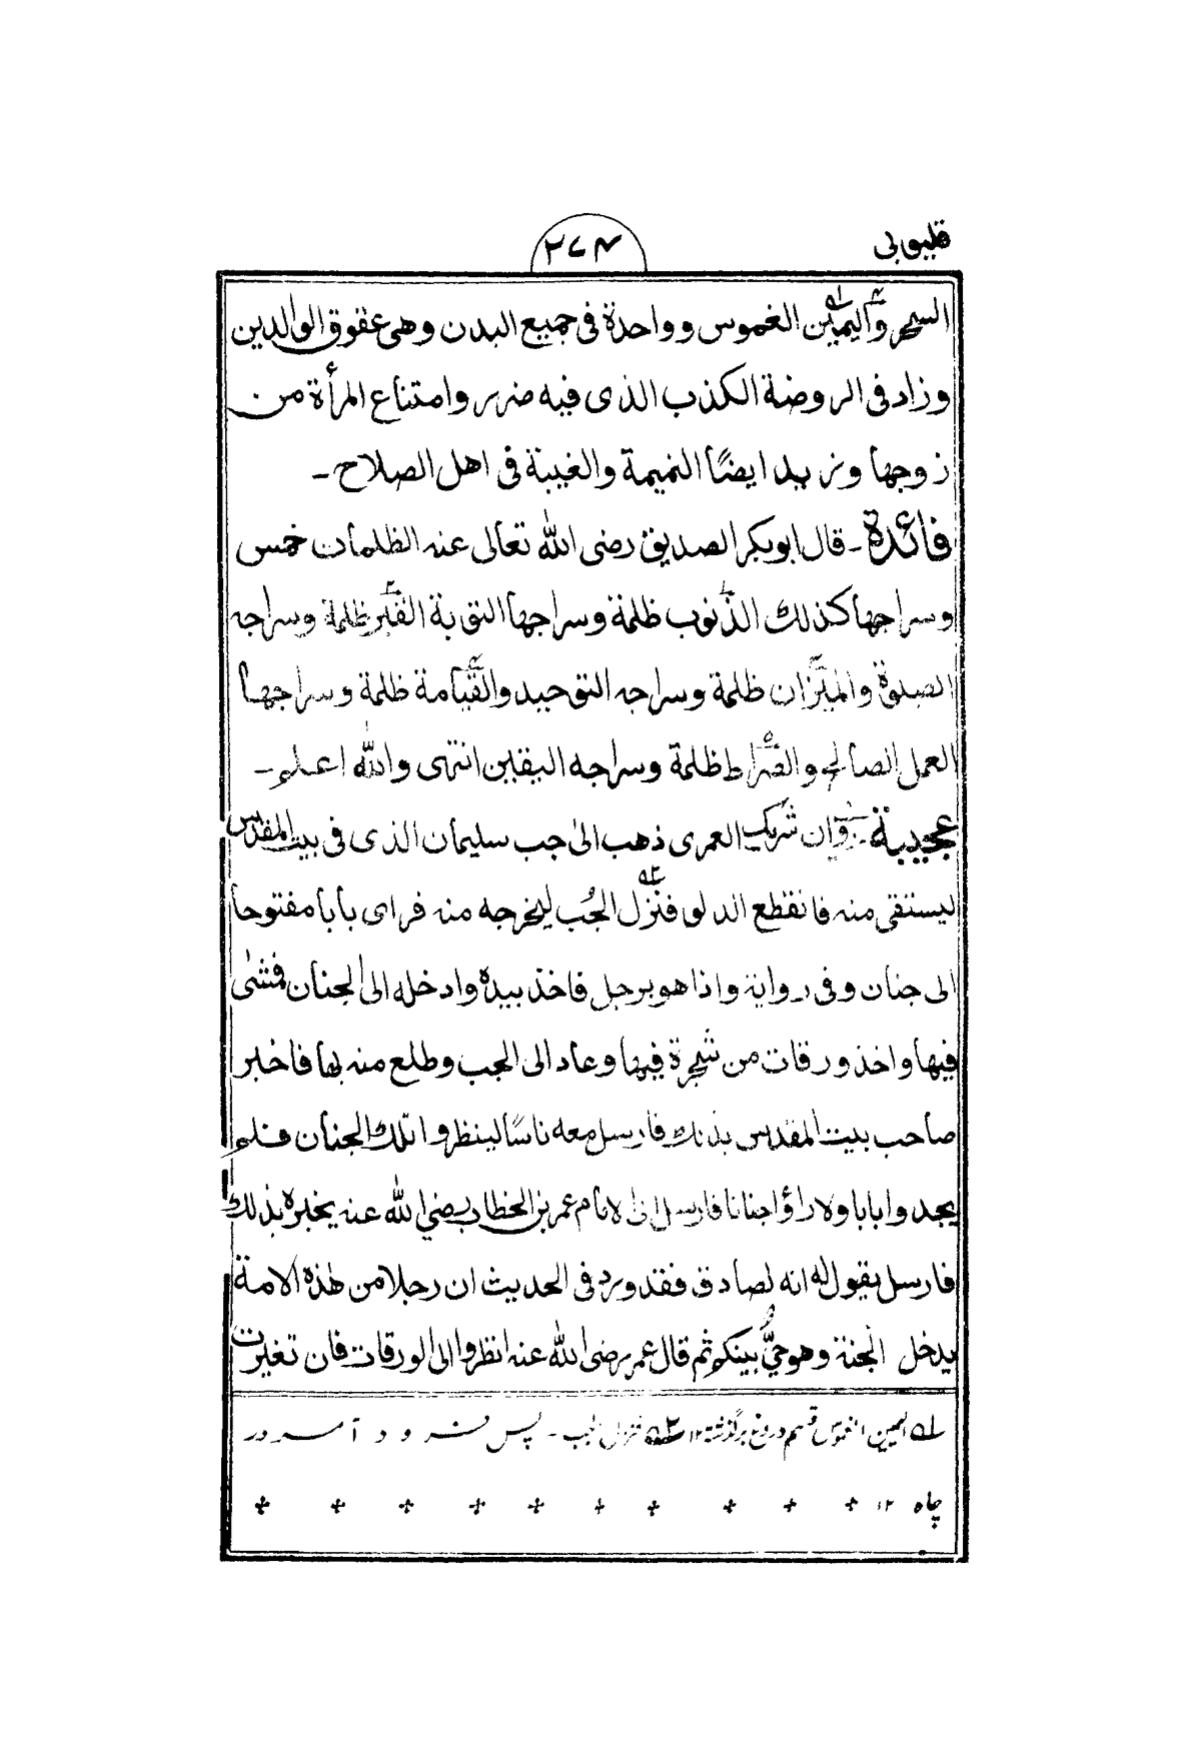 قليوبى
٢٧٤
السحر واليمين الغموس وواحدة فى جميع البدن وهى عقوق الوالدين
وزاد فى الروضة الكذب الذى فيه ضرر وامتناع المرأة من
زوجها ونزيد ايضًا النميمة والغيبة فى اهل الصلاح ـ
فائدة ـ قال ابوبكر الصديق رضى الله تعالى عنه الظلمات خمس
وسراجها كذلك الذنوب ظلمة وسراجها التوبة القبر ظلمة وسراجه
الصلوة والميزان ظلمة وسراجه التوحيد والقيامة ظلمة وسراجها
العمل الصالح والصراط ظلمة وسراجه اليقين انتهى والله اعلم ـ
عجيبة ـ وان شريك العمرى ذهب الىٰ جب سليمان الذى فى بيت المقدس
ليستقى منه فانقطع الدلو فنزل الجُب ليخرجه منه فراى بابا مفتوحا
الى جنان وفى رواية واذا هو برجل فاخذ بيده وادخله الى الجنان فمشىٰ
فيها واخذ ورقات من شجرة فيها وعاد الى الجب وطلع منه بها فاخبر
صاحب بيت المقدس بذلك فارسل معه ناسًا لينظروا تلك الجنان فلم
يجدوا بابا ولا راؤا جنانا فارسل الى الامام عمر بن الخطاب رضي الله عنه يخبره بذلك
فارسل يقول له انه لصادق فقد ورد فى الحديث ان رجلا من هٰذه الامة
يدخل الجنة وهو حيٌّ بينكم ثم قال عمر رضى الله عنه انظروا الى الورقات فان تغيرت
١؎ اليمين الغموس قسم دروغ برگذشته ١٢ ٢؎ فنزل الجب ـ پس فرود آمد در
چاه ١٢